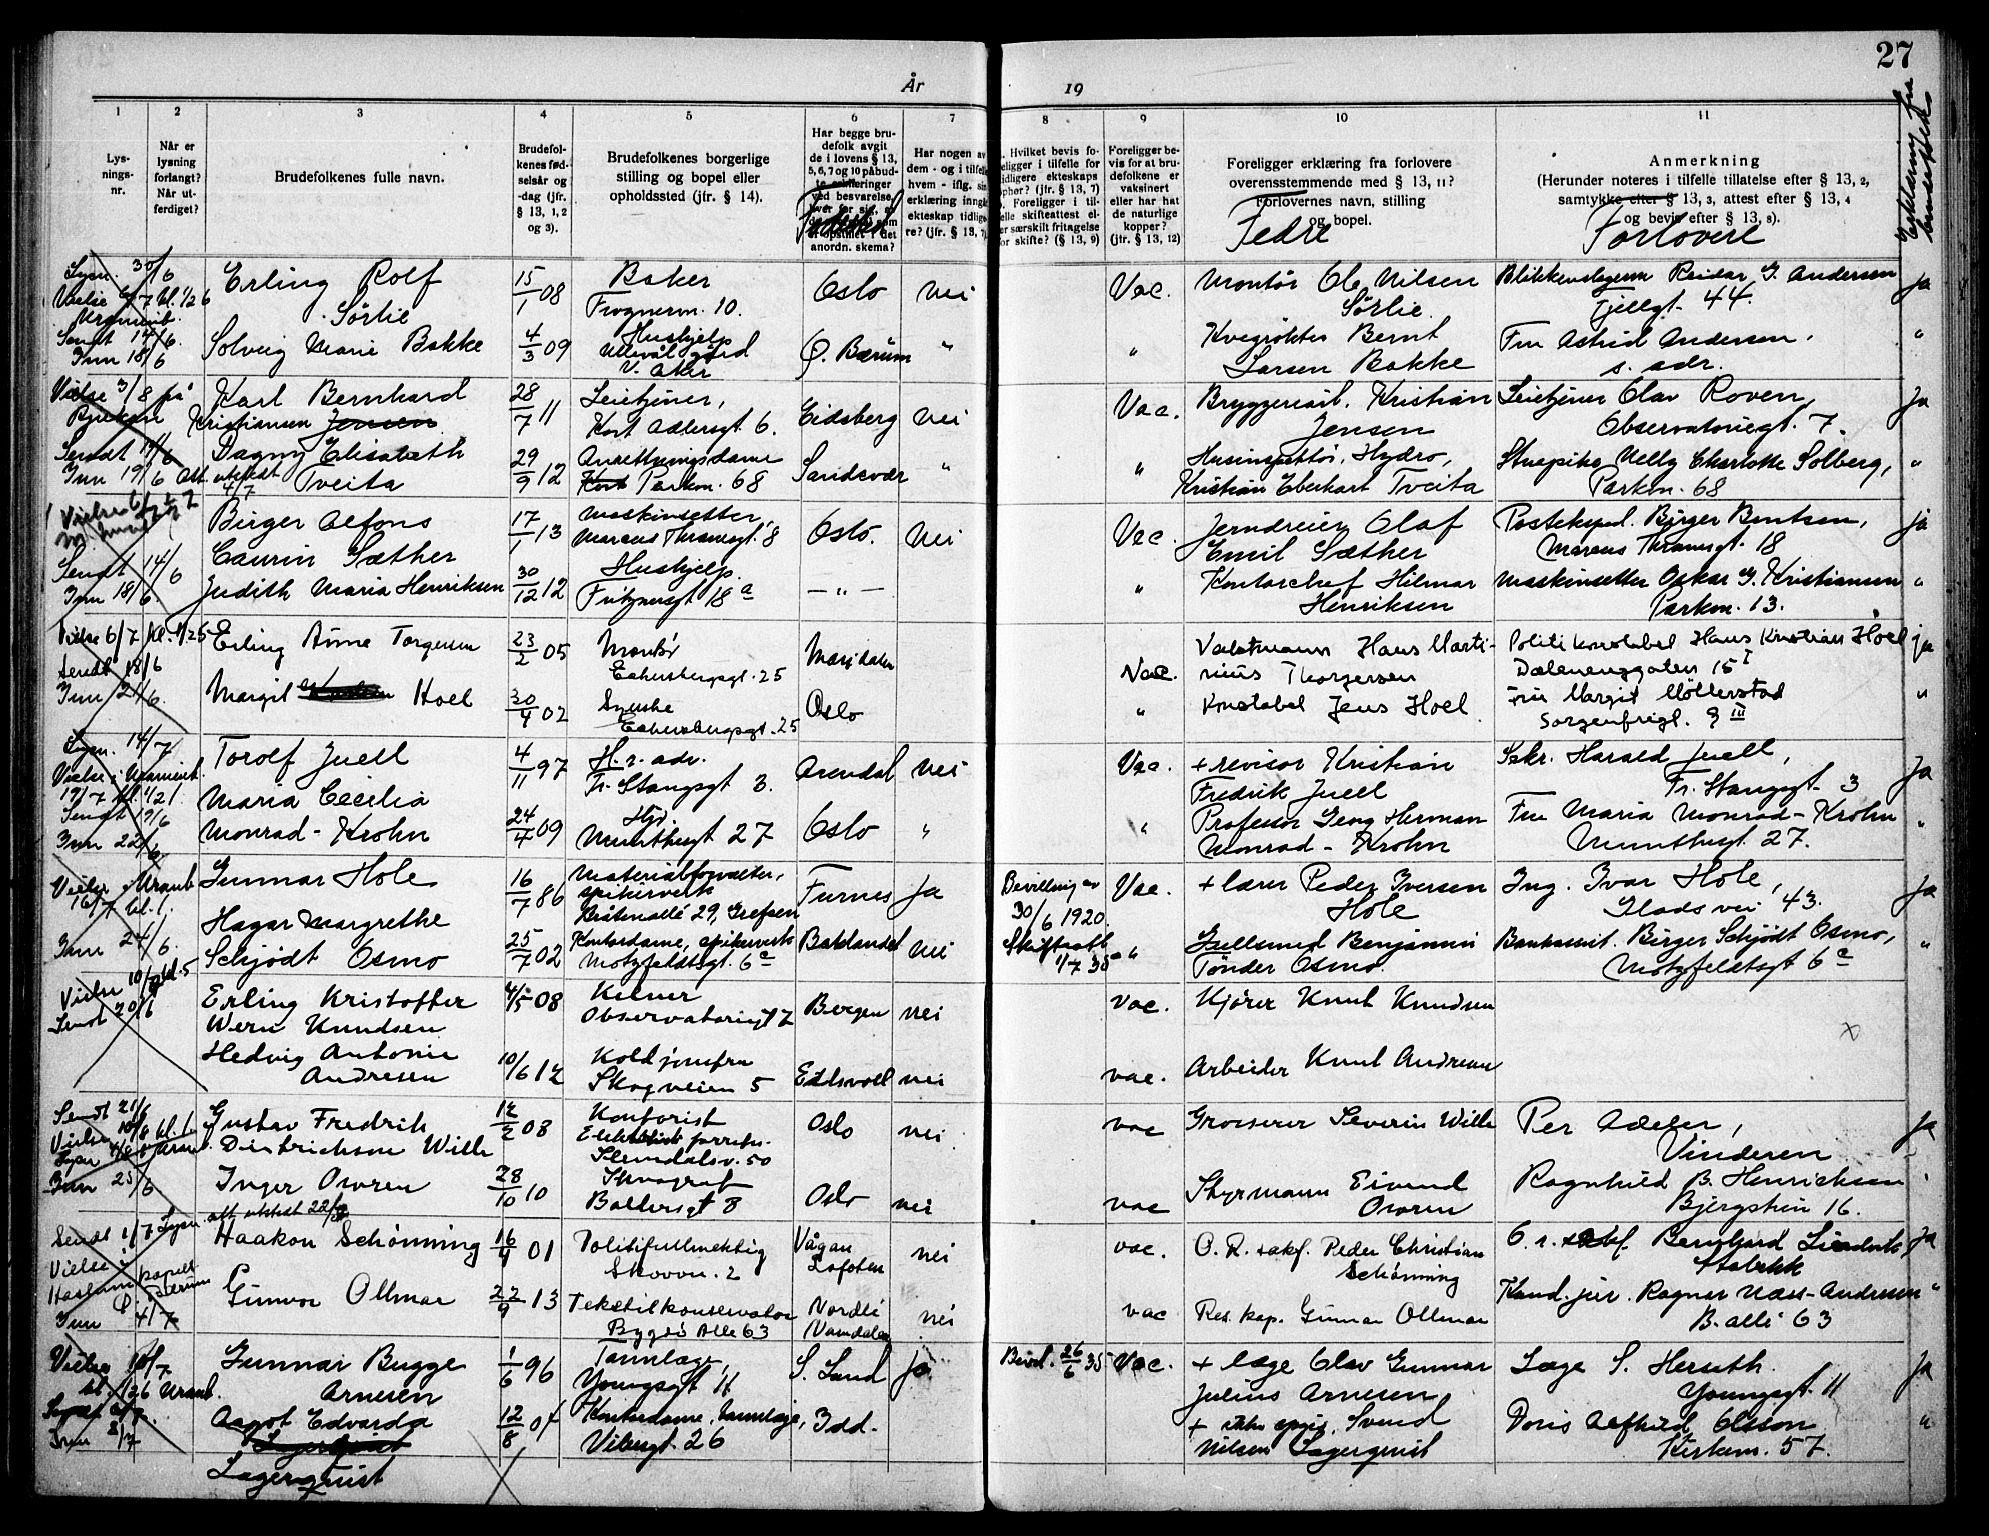 27
År
19
Erklæring fra
brudefolk
1
2
3
4
5
6
7
8
9
10
11
Lys-
nings-
nr.
Når er
lysning
forlangt?
Når ut-
ferdiget?
Brudefolkenes fulle navn.
Brudefol-
kenes fød-
selsår og
-dag (jfr.
§ 13, 1, 2
og 3).
Brudefolkenes borgerlige
stilling og bopel eller
opholdssted (jfr. § 14).
Har begge bru-
defolk avgit
de i lovens § 13,
5, 6, 7 og 10 påbud-
te erklæringer
ved besvarelse,
anordn. skema?
Fødested
Har nogen av
dem - og i tilfelle
hvem - iflg. sin
erklæring inngått
ekteskap tidlige-
re? (jfr. § 13, 7)
Hvilket bevis fo-
religger i tilfelle for
tidligere ekteskaps
ophør? (jfr. § 13, 7)
Foreligger i til-
felle skifteattest el-
er særskilt fritagelse
for skifte? (§ 13, 9)
Foreligger be-
vis for at bru-
defolkene er
vaksinert
eller har hat
de naturlige
kopper?
(jfr. § 13, 12)
Foreligger erklæring fra forlovere
overensstemmende med § 13, 11?
Forlovernes navn, stilling
og bopel.
Fedre
Anmerkning
(Herunder noteres i tilfelle tillatelse efter § 13, 2,
samtykke efter § 13, 3, attest efter § 13, 4
og bevis efter § 13, 8).
Forlovere
Lysn. 30/6
Vielse 6/7 kl. 1/2 6
Uranienb.
Sendt 14/6.
Inn 18/6
Erling Rolf
Sörlie
15/1 08
Baker
Frognervn. 10.
Oslo
Nei
Vac.
Montör Ole Nilsen
Sörlie.
Blikkenslagerm Reidar G. Andersen
Fjellgt. 44.
Ja
Solveig Marie Bakke
4/3 09
Hushjelp
Ullevål gård
V. Aker
Ö. Bærum
"
"
Kvegrökter Bernt
Larsen Bakke
Fru Astrid Andersen,
s. adr.
"
Vielse 3/8 på
Sendt 14/6
Inn 19/6 Att. utstedt
4/7
Karl Bernhard
Kristiansen Jensen
28/7 11
Leietjener,
Kort Adlersgt 6.
Eidsberg
Nei
Vac.
Bryggeriarb. Kristian
Jensen
Leietjener Olav Roven,
Observatoriegt. 7.
Ja
Dagny Elisabeth
Tveita
29/9 12
Ansettningsdame
Kort Parkvn. 68
Sandsvær
"
"
Husinspektör, Hydro,
Kristian Eberhart Tveita
Stuepike Nelly Charlotte Solberg,
Parkvn. 68
"
Sendt 14/6
Inn 18/6
Birger Alfons
Caurin Sæther
17/1 13
Maskinsetter,
Marcus Thranesgt. 8
Oslo.
Nei
Vac.
Jerndreier Olaf
Emil Sæther
Postekspd. Birger Bentsen,
Marcus Thranesgt. 18
ja
Judith Maria Henriksen
30/12 12
Hushjelp.
Fritznersgt 18 a
— " —
"
Kontorchef Hilmar
Henriksen
Maskinsetter Oskar G. Kristiansen
Parkvn. 13.
"
Vielse 6/7 kl. 1/2 5
Sendt 18/6
Inn 21/6.
Erling Arne Torgersen
23/2 05
Montör
Eckersbergsgt. 25
Maridalen
Vac.
Vaktmann Hans Marti-
nius Thorgersen
Politikonstabel Hans Kristian Hoel
Dælenenggaten 15 I
ja
Margit Hoel
30/4 02
Syerske
Eckersbergsgt. 25
Oslo
"
Konstabel Jens Hoel
Fru Margit Möllerstad
Sorgenfrigt. 9 III
"
Lysn. 14/7
Vielse i Uranienb.
19/7 kl. 1/2 1.
Sendt 19/6
Inn 22/6
Torolf Juell
4/11 97
H. r. adv.
Fr. Stangsgt 3.
Arendal
Nei
Vac.
+ revisor Kristian
Fredrik Juell
Sekr. Harald Juell,
Fr. Stangsgt. 3
Ja
Maria Cecilia
Monrad-Krohn
24/4 09
Hj.
Munthesgt 27
Oslo
"
"
Professor Georg Herman
Monrad-Krohn
Fru Maria Monrad-Krohn
Munthesgt 27.
"
Vielse Uranb
16/7 kl. 1.
Inn 24/6.
Gunnar Hole
16/7 86
Materialforvalter,
spikerverk
Bråtenallé 29, Grefsen
Furnes
Ja
Bevilling av
30/6 1920.
Skifteatt
1/7 35
Vac.
+ lærer Peder Iversen
Hole
Ing. Ivar Hole,
Gladsvei 43.
Ja
Hagar Margrethe
Schjödt Osmo
25/7 02
Kontordame, spikerverk
Motzfeldtsgt. 6 c
Baklandet
Nei
"
Gullsmed Benjamin
Tönder Osmo.
Bankassist. Birger Schjödt Osmo,
Motzfeldtsgt 6 c
"
Vielse 10/8 kl. 5
Sendt 20/6
Erling Kristoffer
Wern Knudsen
4/5 08
Kelner
Observatoriegt 7
Bergen
nei
vac.
Kjörer Knut Knudsen
x
Hedvig Antonie
Andresen
10/6 12
Koldjomfru
Skogveien 5
Eidsvoll
nei
vac.
Arbeider Knut Andresen
Sendt 21/6
Vielse 10/8 kl. 1
Inn 25/6
Gustav Fredrik
Dietrichson Wille
12/2 08
Kontorist
Slemdalsv. 50
Oslo
nei
vac
Grosserer Severin Wille
Per Adeler,
Vinderen
Ja
Inger Owren
28/10 10
Stenograf
Baldersgt 8
Oslo
nei
vac
Styrmann Eivind
Owren
Ragnhild B. Henrichsen
Bjergstien 16.
Sendt 1/7 Lysn. att utstedt 22/7
Vielse i
Haslum kapell
Bærum
Inn 4/7
Haakon Schönning
16/4 01
Politifullmektig
Skovvn. 2
Vågan
Lofoten
nei
vac.
O. R. sakf. Peder Christian
Schönning
O. r. sakf. Bernhard
Stabekk
Ja
Gunvor Ollmar
22/9 13
Tekstilkonservator
Bygdö Alle 63
Nordli
Namdalen
nei
vac
Res. kap. Gunnar Ollmar
Kand. jur. Ragnar Næss-Andresen
B. allé 63
"
Gunnar Bugge
Arnesen
1/6 96
Tannlæge
Youngsgt 11
S. Land
ja
Bevil. 26/6 35
Vac.
+ læge Olav Gunnar
Julius Arnesen
Læge S. Herseth
Youngsgt. 11
Ja
Aagot Edvarda
Lagerquist
Lagerquist
12/8 07
Kontordame, tannlæge,
Vibesgt. 26
Idd.
Svend
Nilsen Lagerquist
Doris Alfhild Olsson
Kirkevn. 57.
"